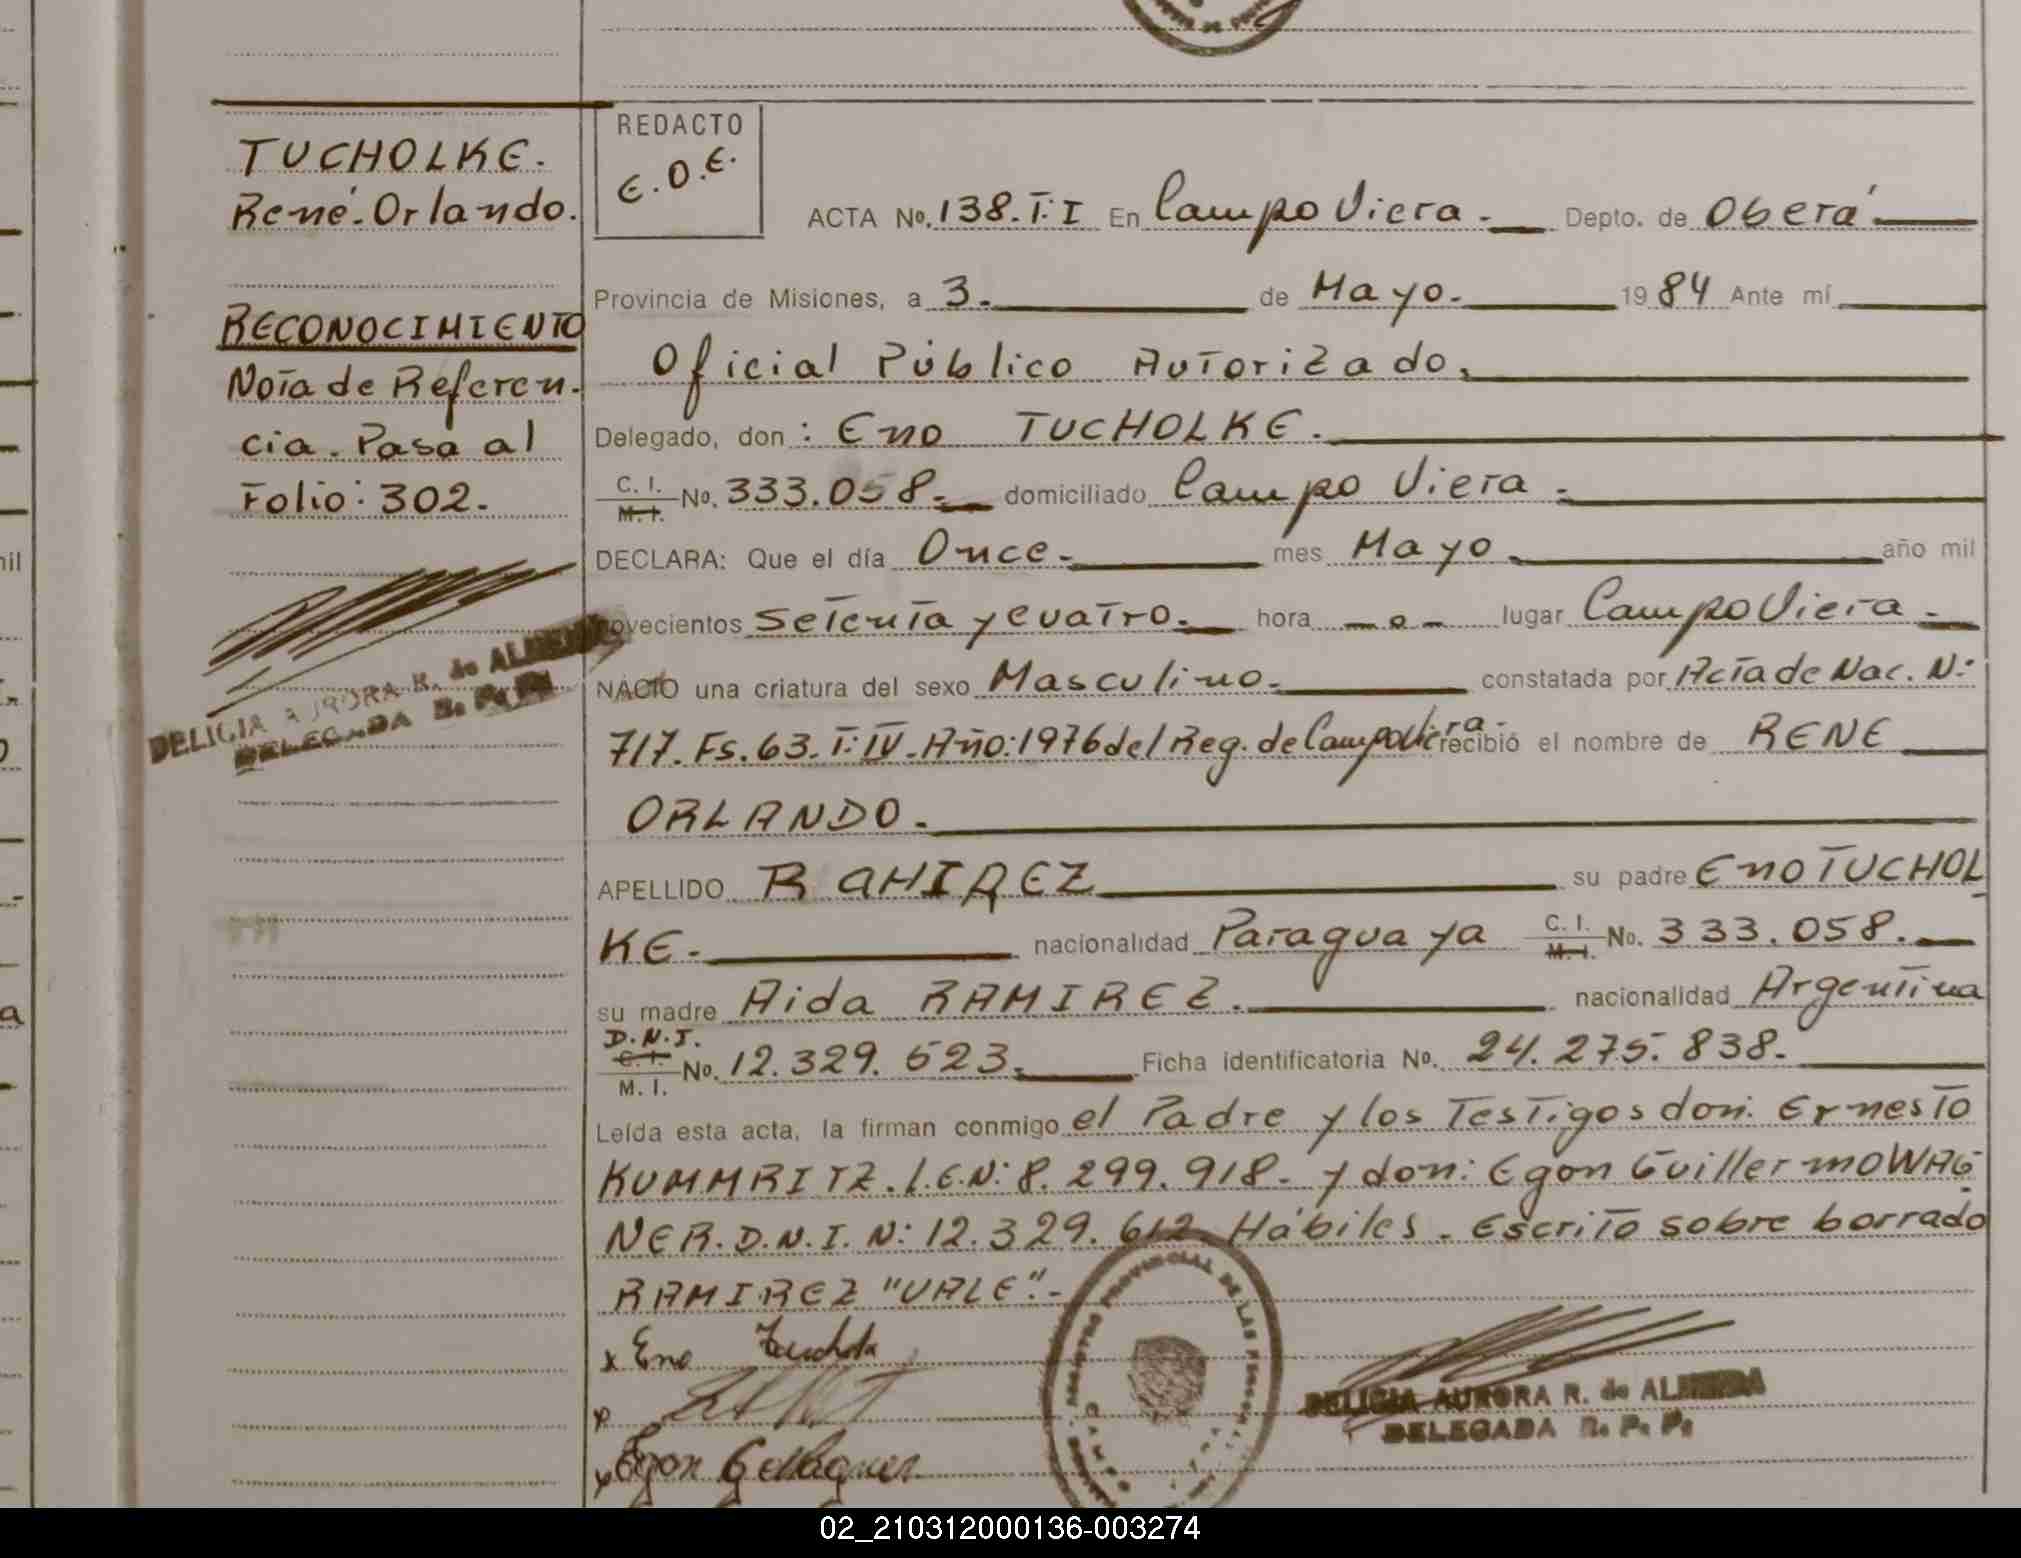 TUCHOLKE.
René. Orlando.
RECONOCIMIENTO
Nota de Referen-
cia. Pasa al
Folio: 302.
DELICIA AURORA R. de ALMEIDA
DELEGADA R. P. P.
REDACTO
E.D.E.
ACTA No. 138. T: I En Campo Viera. Depto. de Oberá
Provincia de Misiones, a 3. de Mayo. 19 84 Ante mí
Oficial Público Autorizado,
Delegado, don: Eno TUCHOLKE.
C. I.
M. I. No. 333.058. domiciliado Campo Viera.
DECLARA: Que el día Once. mes Mayo año mil
novecientos setenta y cuatro. hora — o — lugar Campo Viera.
NACIO una criatura del sexo Masculino. constatada por Acta de Nac. N:
717. Fs. 63. T: IV. Año: 1976 del Reg. de Campo Viera. recibió el nombre de RENE
ORLANDO.
APELLIDO RAMIREZ su padre Eno TUCHOL
KE. nacionalidad Paraguaya C. I. M. I. No. 333.058.
su madre Aida RAMIREZ. nacionalidad Argentina
D.N.I.
C. I.
M. I. No. 12.329.623. Ficha identificatoria No. 24.275.838.
Leída esta acta, la firman conmigo el Padre y los Testigos don: Ernesto
KUMMRITZ. L.E.N: 8.299.918. y don: Egon Guillermo WAG-
NER. D.N.I. N: 12.329.612 Hábiles. Escrito sobre borrado
RAMIREZ "VALE".-
x Eno Tucholke
x
x Egon G Wagner
REGISTRO PROVINCIAL DE LAS PERSONAS
DELICIA AURORA R. de ALMEIDA
DELEGADA R. P. P.
mil
a
02_210312000136-003274